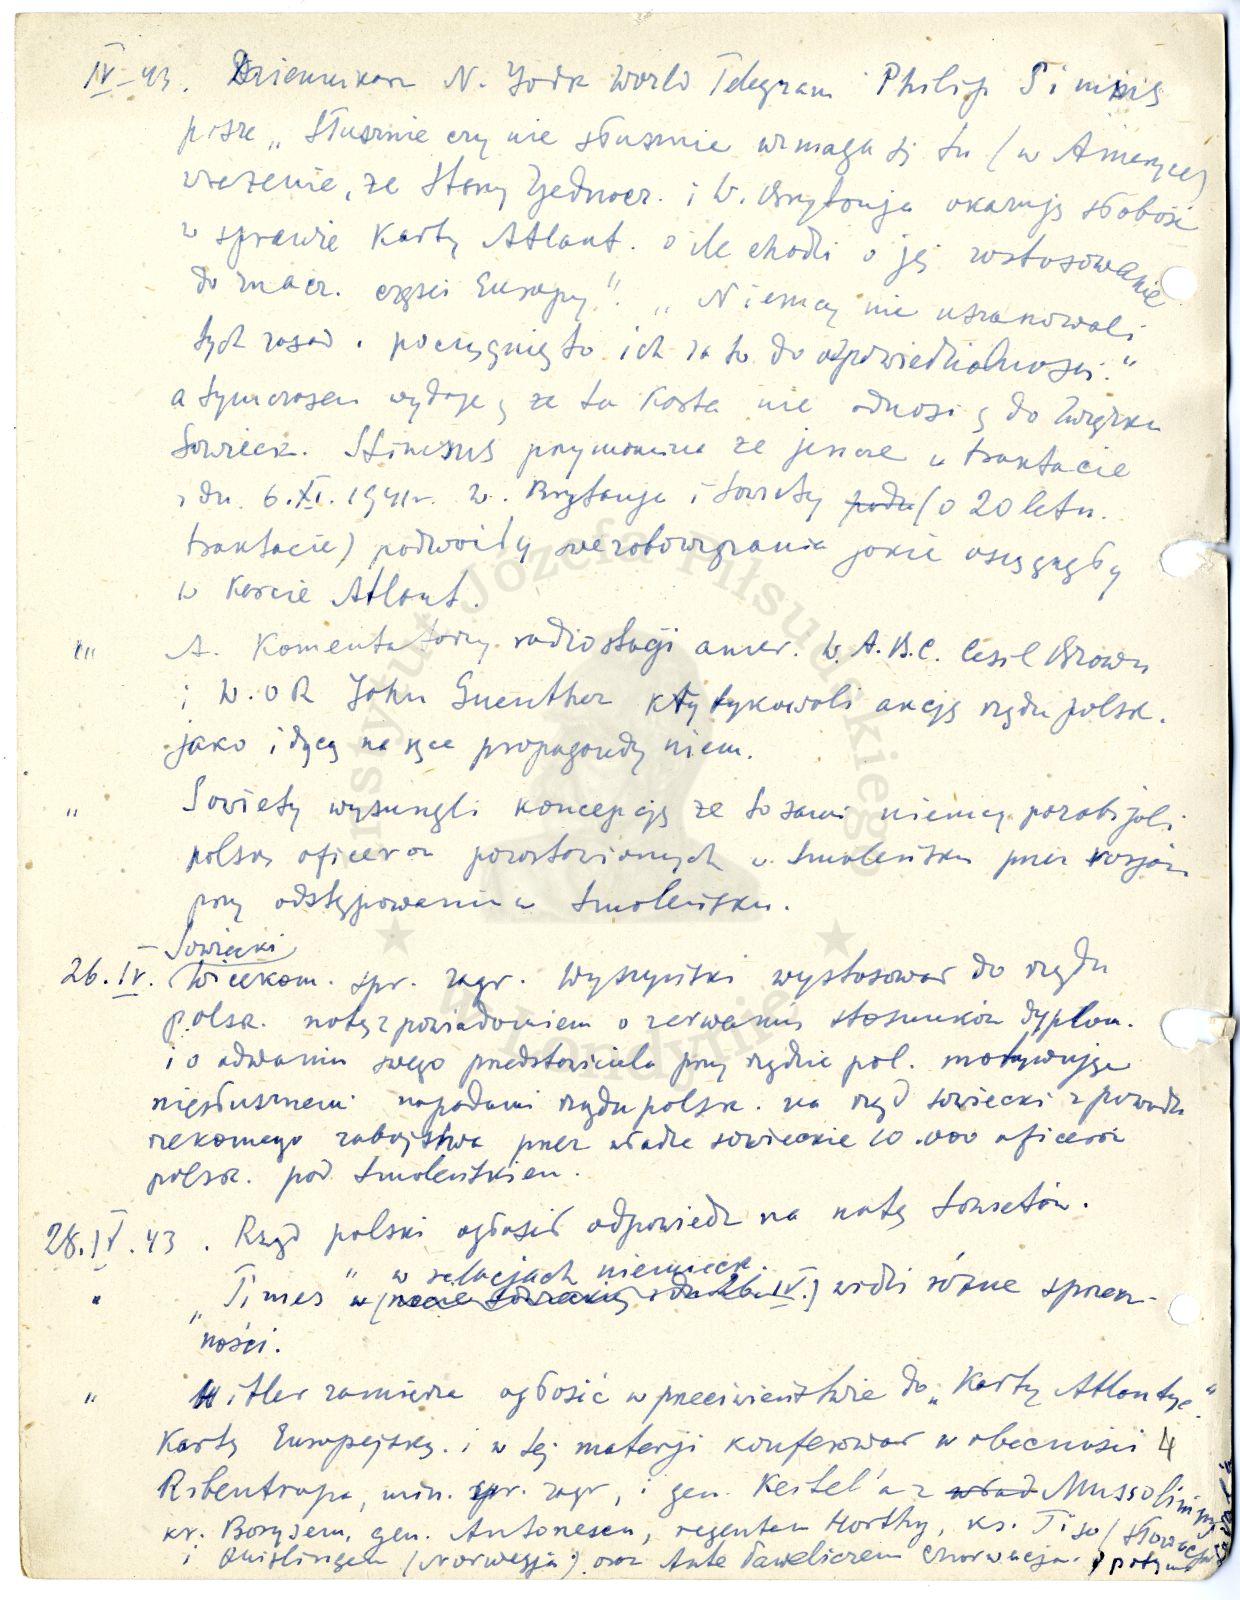 IV-43. Dziennikarz N. York World Telegram Philip Simms
pisze „Słusznie czy nie słusznie wzmaga się tu (w Ameryce)
wrażenie, że Stany Zjednocz. i W. Brytanja okazują słabość
w sprawie Karty Atlant. o ile chodzi o jej zastosowanie
do znacz. części Europy". „Niemcy nie uszanowali
tych zasad i pociągnięto ich za to do odpowiedzialności."
a tymczasem wydaje się że ta Karta nie odnosi się do Związku
Sowieck. Simms przypomina że jeszcze w traktacie
z dn. 6.XI.1941r. W. Brytanja i Sowiety podw (o 20 letn.
traktacie) podwoiły swe zobowiązania jakie
w Karcie Atlant.
"" A. Komentatorzy radiostacji amer. W.A.B.C. Cesil Brown
i W.O.R John Guenther krytykowali akcję rządu polsk.
jako idącą na rękę propagandy niem.
" Sowiety wysunęli koncepcję że to sami niemcy pozabijali
polsk. oficerów pozostawionych w Smoleńsku przez rosjan
przy odstępowaniu w Smoleńsku.
Sowiecki
26.IV. Wicekom. spr. zagr. Wyszyński wystosował do rządu
polsk. notę z powiadomieniem o zerwaniu stosunków dyplom.
i o odwaniu swego przedstawiciela przy rządzie pol. motywując
niesłusznemi napadami rządu polsk. na rząd sowiecki z powodu
rzekomego zabójstwa przez władze sowieckie 10.000 oficerów
polsk. pod Smoleńskiem.
28.IV.43. Rząd polski ogłosił odpowiedź na notę Sowietów.
w relacjach niemieck.
" „Times" w (nocie sowieckiej z dn. 26.IV.) widzi różne sprzecz-
ności.
" Hitler zamierza ogłosić w przeciwieństwie do „Karty Atlantyc."
Kartę Europejską i w tej materji konferował w obecności 4
Ribentropa, min. spr. zagr., i gen. Keitel'a z Mussolinim,
kr. Borysem, gen. Antonescu, regentem Horthy, ks. Tiso (Słowacja)
i Quislingem (Norwegja) oraz Ante Paweliczem Chorwacja. i potym